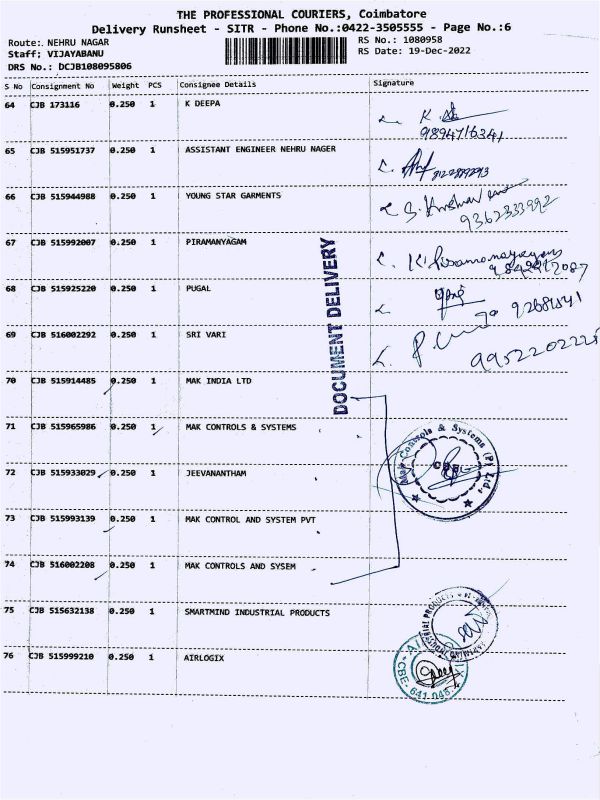 THE PROFESSIONAL COURIERS, Coimbatore
Delivery Runsheet - SITR - Phone No.:0422-3505555 - Page No.:6
Route: NEHRU NAGAR
RS No.: 1080958
Staff; VIJAYABANU
RS Date: 19-Dec-2022
DRS No.: DCJB108095806
S No Consignment No Weight PCS Consignee Details Signature
64 CJB 173116 0.250 1 K DEEPA
9894716341
65 CJB 515951737 0.250 1 ASSISTANT ENGINEER NEHRU NAGER
66 CJB 515944988 0.250 1 YOUNG STAR GARMENTS
9362333992
67 CJB 515992007 0.250 1 PIRAMANYAGAM
68 CJB 515925220 0.250 1 PUGAL
69 CJB 516002292 0.250 1 SRI VARI
DOCUMENT DELIVERY
70 CJB 515914485 0.250 1 MAK INDIA LTD
71 CJB 515965986 0.250 1 MAK CONTROLS & SYSTEMS
Mak Controls & Systems (P) Ltd.,
72 CJB 515933029 0.250 1 JEEVANANTHAM
73 CJB 515993139 0.250 1 MAK CONTROL AND SYSTEM PVT
74 CJB 516002208 0.250 1 MAK CONTROLS AND SYSEM
75 CJB 515632138 0.250 1 SMARTMIND INDUSTRIAL PRODUCTS
76 CJB 515999210 0.250 1 AIRLOGIX